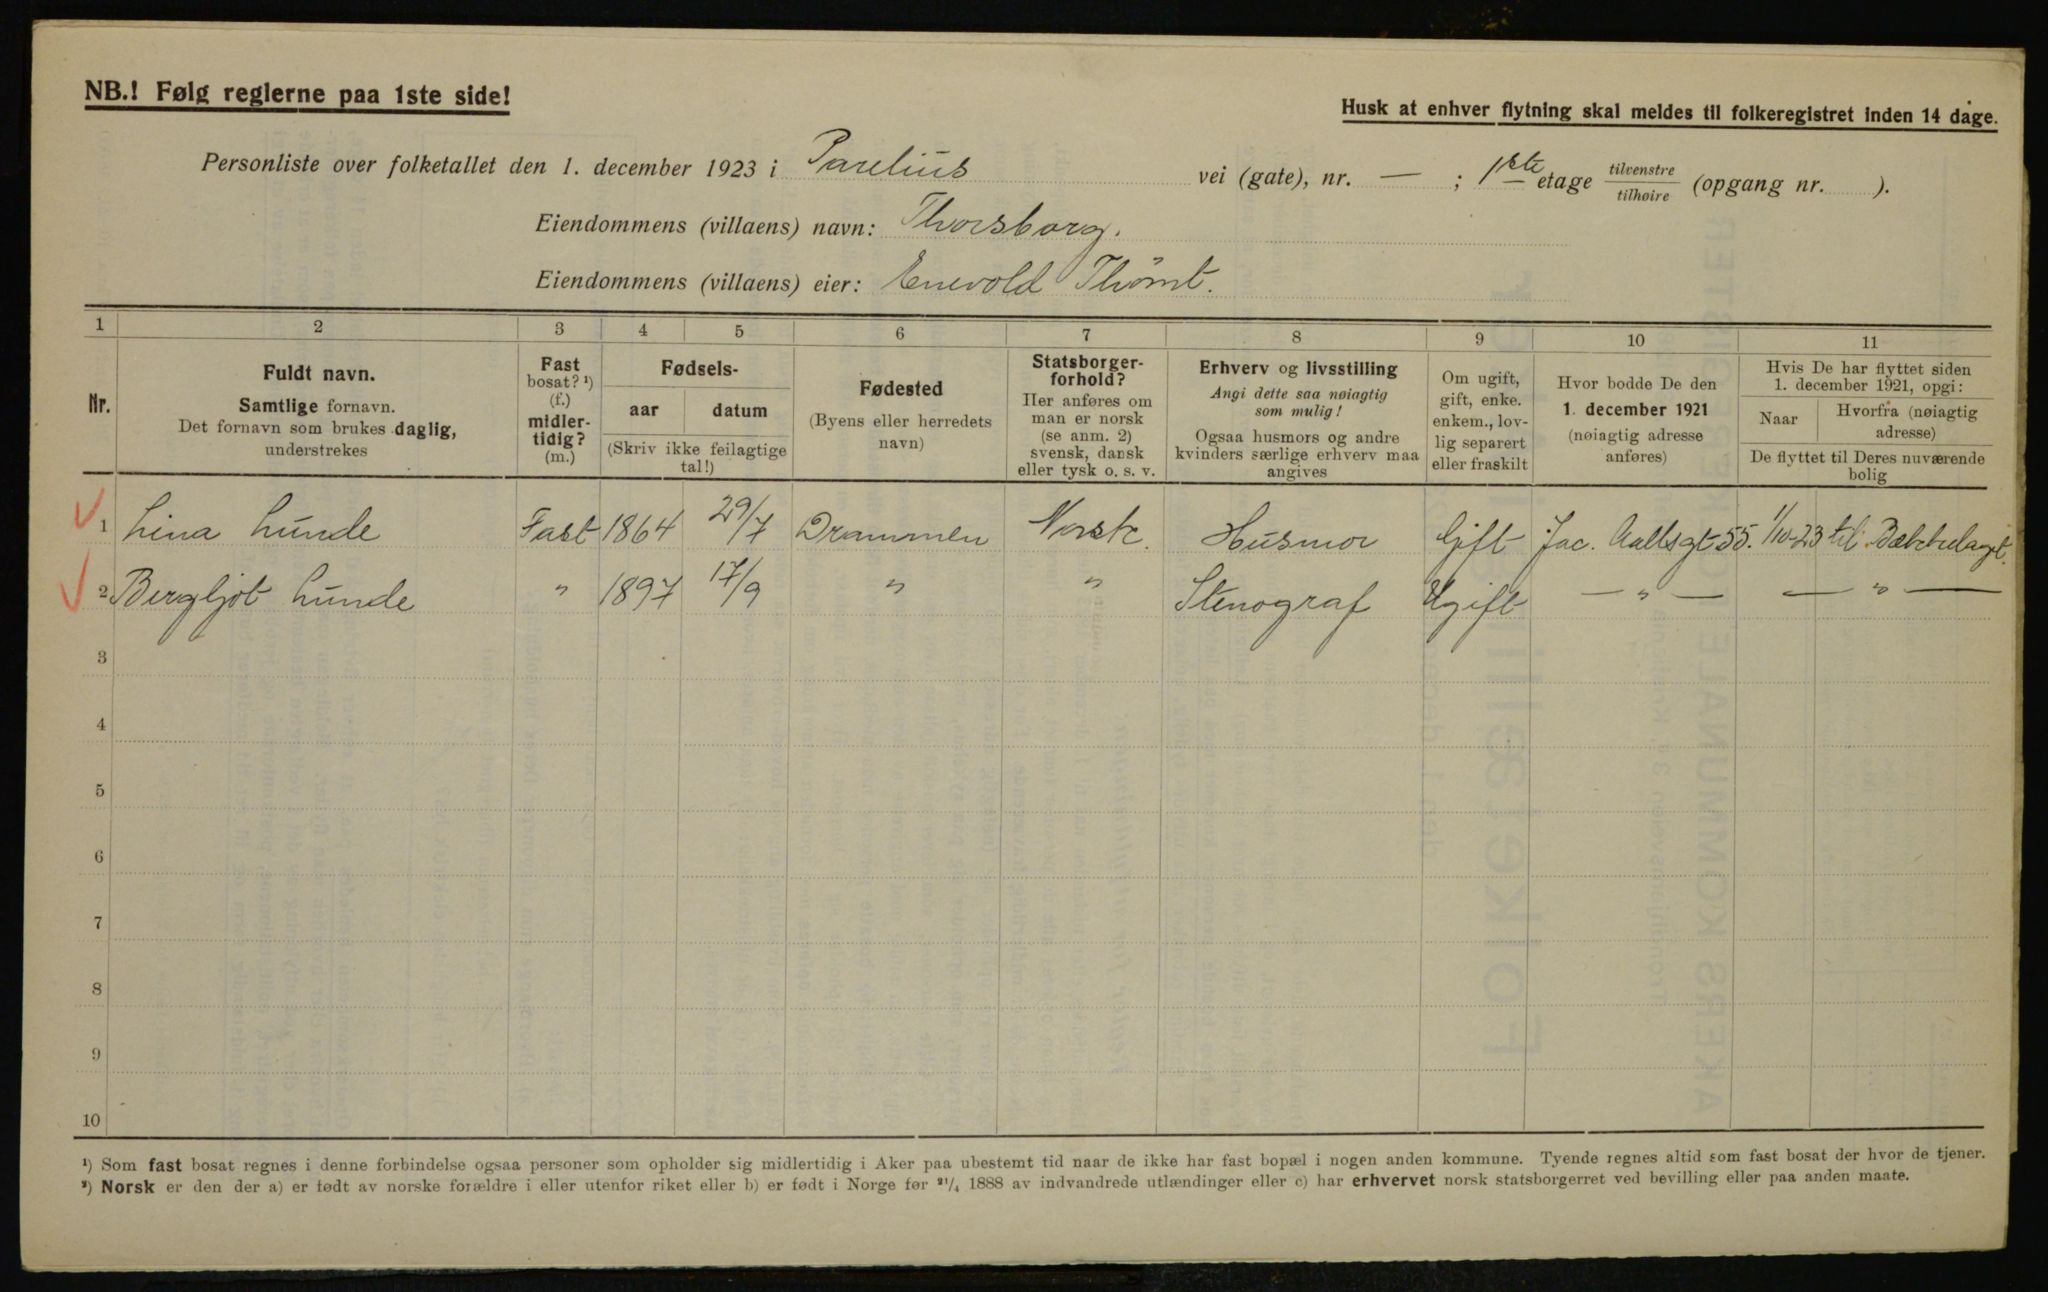 NB.! Følg reglerne paa 1ste side!
Husk at enhver flytning skal meldes til folkeregistret inden 14 dage.
Personliste over folketallet den 1. december 1923 i Parelius vei (gate), nr. — ; 1ste etage tilvenstre/tilhøire (opgang nr. ).
Eiendommens (villaens) navn: Thorsborg.
Eiendommens (villaens) eier: Enevold Thömt.
1 2 3 4 5 6 7 8 9 10 11
Nr.
Fuldt navn.
Samtlige fornavn.
Det fornavn som brukes daglig,
understrekes
Fast
bosat? ¹)
(f.)
midler-
tidig?
(m.)
Fødsels-
aar datum
(Skriv ikke feilagtige
tal!)
Fødested
(Byens eller herredets
navn)
Statsborger-
forhold?
Her anføres om
man er norsk
(se anm. 2)
svensk, dansk
eller tysk o. s. v.
Erhverv og livsstilling
Angi dette saa nøiagtig
som mulig!
Ogsaa husmors og andre
kvinders særlige erhverv maa
angives
Om ugift,
gift, enke.
enkem., lov-
lig separert
eller fraskilt
Hvor bodde De den
1. december 1921
(nøiagtig adresse
anføres)
Hvis De har flyttet siden
1. december 1921, opgi:
Naar
Hvorfra (nøiagtig
adresse)
De flyttet til Deres nuværende
bolig
1 Lina Lunde Fast 1864 29/7 Drammen Norsk. Husmor Gift Jac. Aallsgt 55. 1/10-23 til Bækkelaget.
2 Bergljot Lunde " 1897 17/9 " " Stenograf Ugift — " — — " —
3
4
5
6
7
8
9
10
¹) Som fast bosat regnes i denne forbindelse ogsaa personer som opholder sig midlertidig i Aker paa ubestemt tid naar de ikke har fast bopæl i nogen anden kommune. Tyende regnes altid som fast bosat der hvor de tjener.
²) Norsk er den der a) er født av norske forældre i eller utenfor riket eller b) er født i Norge før 21/4 1888 av indvandrede utlændinger eller c) har erhvervet norsk statsborgerret ved bevilling eller paa anden maate.